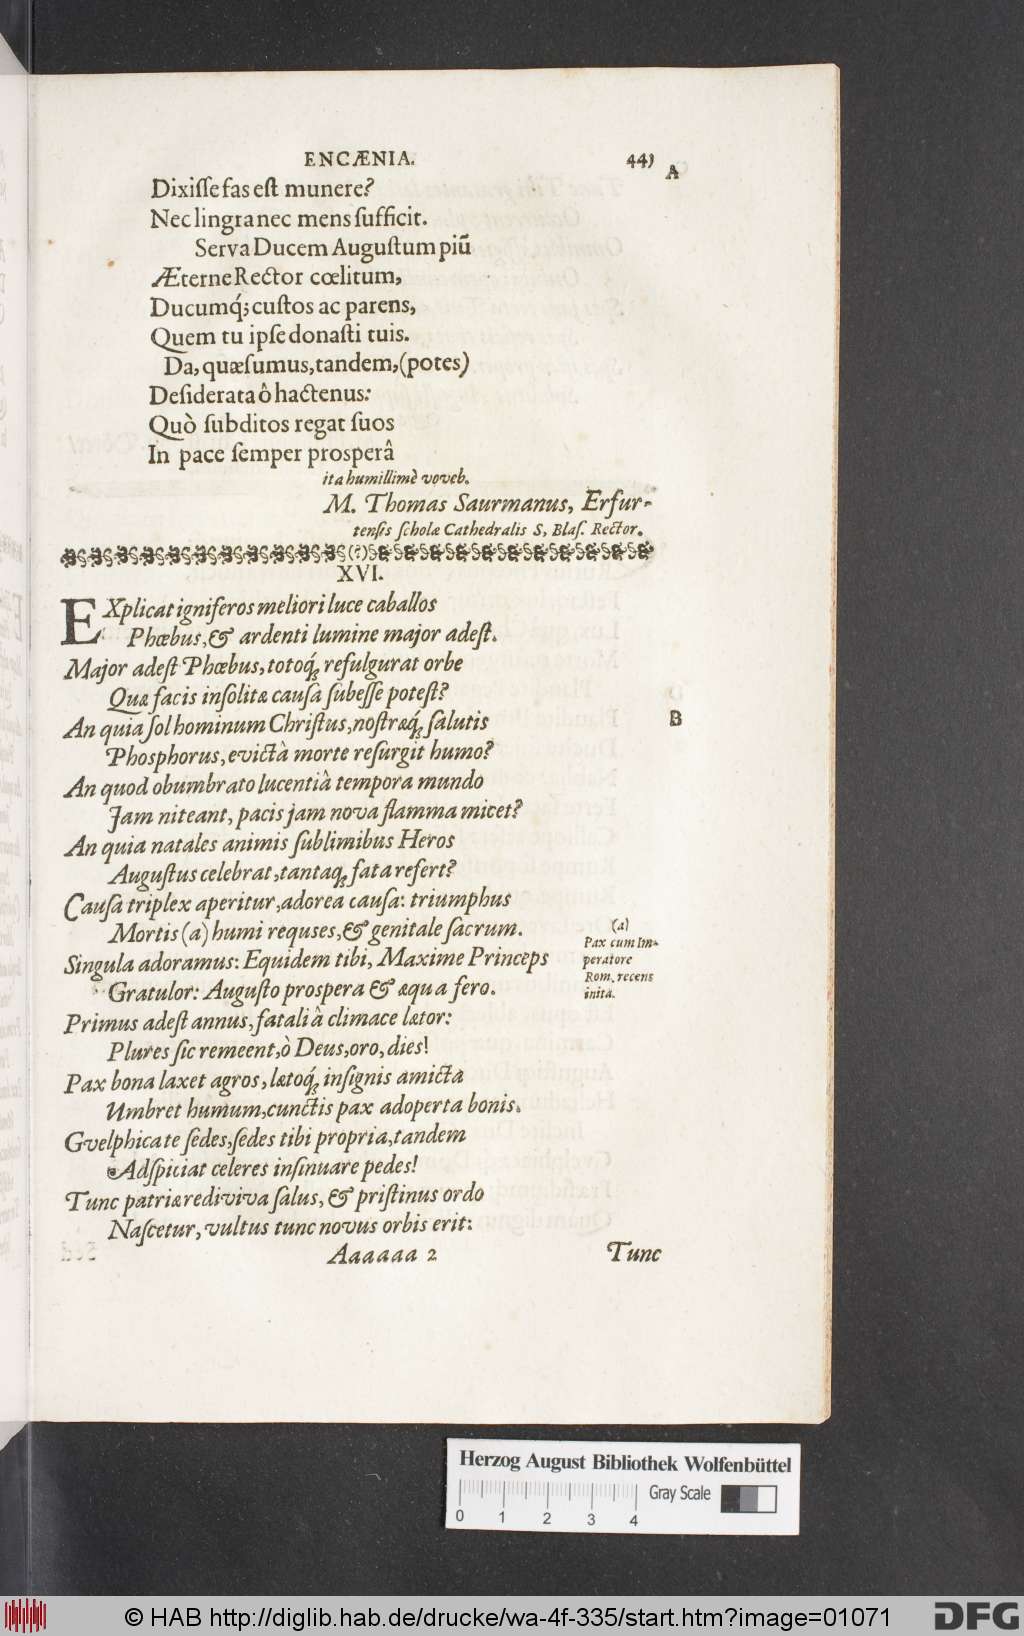 ENCÆNIA. 443
A
Dixiſſe fas eſt munere?
Nec lingra nec mens ſufficit.
Serva Ducem Auguſtum piũ
Æterne Rector cœlitum,
Ducumq́; cuſtos ac parens,
Quem tu ipſe donaſti tuis.
Da, quæſumus, tandem, (potes)
Deſiderata ô hactenus:
Quò ſubditos regat ſuos
In pace ſemper prosperâ
ita humillimè voveb.
M. Thomas Saurmanus, Erfur-
tenſis ſcholæ Cathedralis S, Blaſ. Rector.
(?)
XVI.
EXplicat igniferos meliori luce caballos
Phœbus, & ardenti lumine major adeſt.
Major adeſt Phœbus, totoq́; refulgurat orbe
Quæ facis inſolitæ cauſa ſubeſſe poteſt?
An quia ſol hominum Chriſtus, noſtræq́; ſalutis
B
Phosphorus, evictà morte reſurgit humo?
An quod obumbrato lucentiâ tempora mundo
Jam niteant, pacis jam nova flamma micet?
An quia natales animis ſublimibus Heros
Auguſtus celebrat, tantaq; fata refert?
Cauſa triplex aperitur, adorea cauſa: triumphus
Mortis (a) humi requses, & genitale ſacrum.
(a)
Pax cum Im-
peratore
Rom. recens
inita.
Singula adoramus: Equidem tibi, Maxime Princeps
Gratulor: Auguſto prospera & æqua fero.
Primus adeſt annus, fatali â climace lætor:
Plures ſic remeent, ò Deus, oro, dies!
Pax bona laxet agros, lætoq́; inſignis amicta
Umbret humum, cunctis pax adoperta bonis.
Gvelphica te ſedes, ſedes tibi propria, tandem
Adſpiciat celeres inſinuare pedes!
Tunc patriæ rediviva ſalus, & priſtinus ordo
Naſcetur, vultus tunc novus orbis erit:
Aaaaaa 2 Tunc
Herzog August Bibliothek Wolfenbüttel
Gray Scale
0 1 2 3 4
© HAB http://diglib.hab.de/drucke/wa-4f-335/start.htm?image=01071
DFG